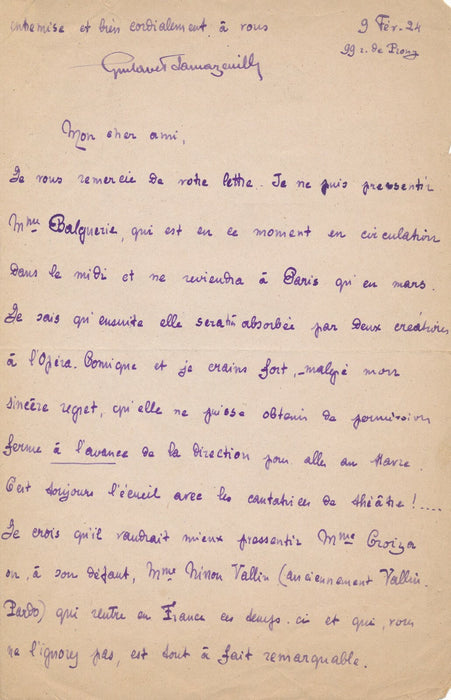 entremise et bien cordialement à vous
Gustave Samazeuilh
9 Fév. 24
99 r. de Prony
Mon cher ami,
Je vous remercie de votre lettre. Je ne puis pressentir
Mme Balguerie, qui est en ce moment en circulation
dans le midi et ne reviendra à Paris qu'en mars.
Je sais qu'ensuite elle sera absorbée par deux créations
à l'Opéra. Comique et je crains fort, malgré mon
sincère regret, qu'elle ne puisse obtenir de permission
ferme à l'avance de la direction pour aller au Havre.
C'est toujours l'écueil avec les cantatrices de théâtre !....
Je crois qu'il vaudrait mieux pressentir Mme Croiza
ou, à son défaut, Mme Ninon Vallin (anciennement Vallin-
Pardo) qui rentre en France ces temps-ci et qui, vous
ne l'ignorez pas, est tout à fait remarquable.